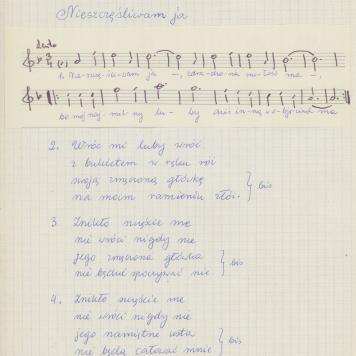 Nieszczęśliwam ja
1. Nie-szczę-śli-wam ja –, zdra-dzo-na mi-łość ma –,
bo mój naj-mil-szy lu-by dziś in-ną
2. Wróć mi luby wróć
z bukietem w ręku
swoją zmęczoną główkę
na moim ramieniu złóż. } bis
3. Znikło szczęście me
nie wróci nigdy nie
jego zmęczona główka
nie będzie spoczywać nie. } bis
4. Znikło szczęście me
nie wróci nigdy nie
jego namiętne usta
nie będą całować mnie } bis